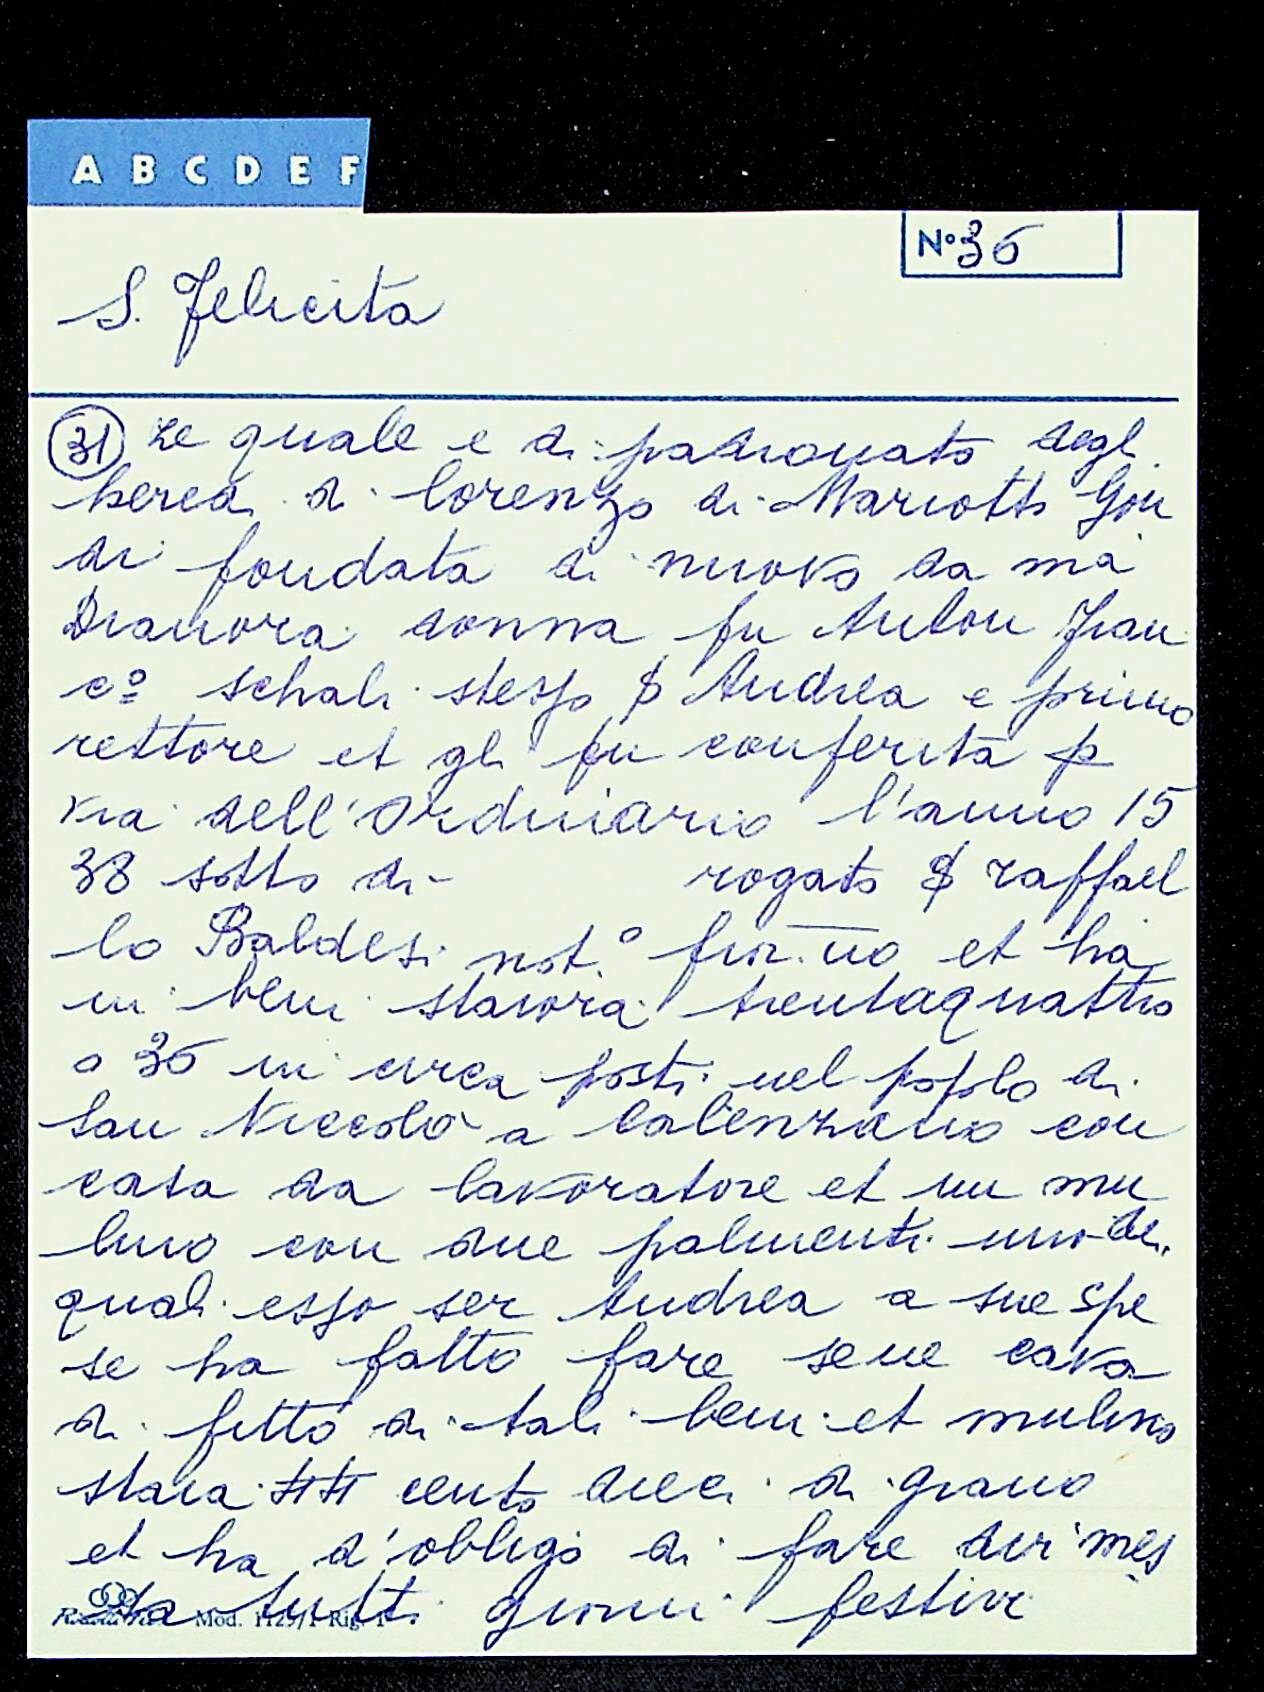 A B C D E F
N° 36
S. Felicita
(31) Le quale e di padronato degl
heredi di Lorenzo di Mariotto Gon
di fondata di nuovo da mа
Dianora donna fu Anton Fran
cº schali stesso $ Andrea e primo
rettore et gli fu conferita p
via dell'Ordinario l'anno 15
38 sotto di - rogato $ raffael
lo Baldesi not.º fior.no et ha
in beni staiora trentaquattro
o 36 in circa posti nel popolo di
San Niccolò a Calenzano con
casa da lavoratore et un mu
lino con due palmenti uno de
quali esso ser Andrea a sue spe
se ha fatto fare sene cava
di fitto di tali beni et mulino
staia cento dieci di grano
et ha d'obligo di fare dir mes
sa tutti giorni festivi
Mod. 1129/1 Rig. 1